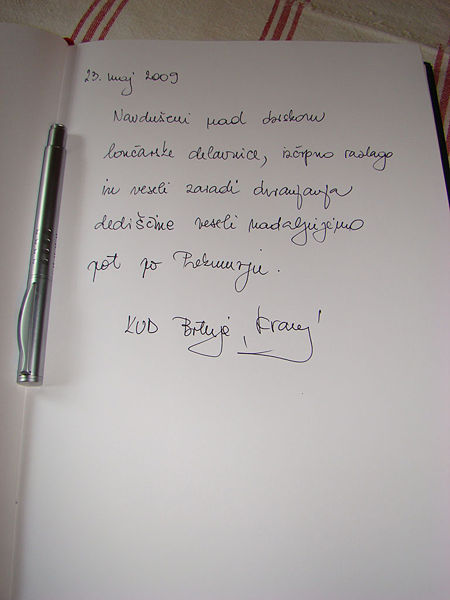 23. maj 2009
Navdušeni nad obiskom
lončarske delavnice, izčrpno razlago
in veseli zaradi ohranjanja
dediščine veseli nadaljujemo
pot po Prekmurju.
KUD Britof, Kranj